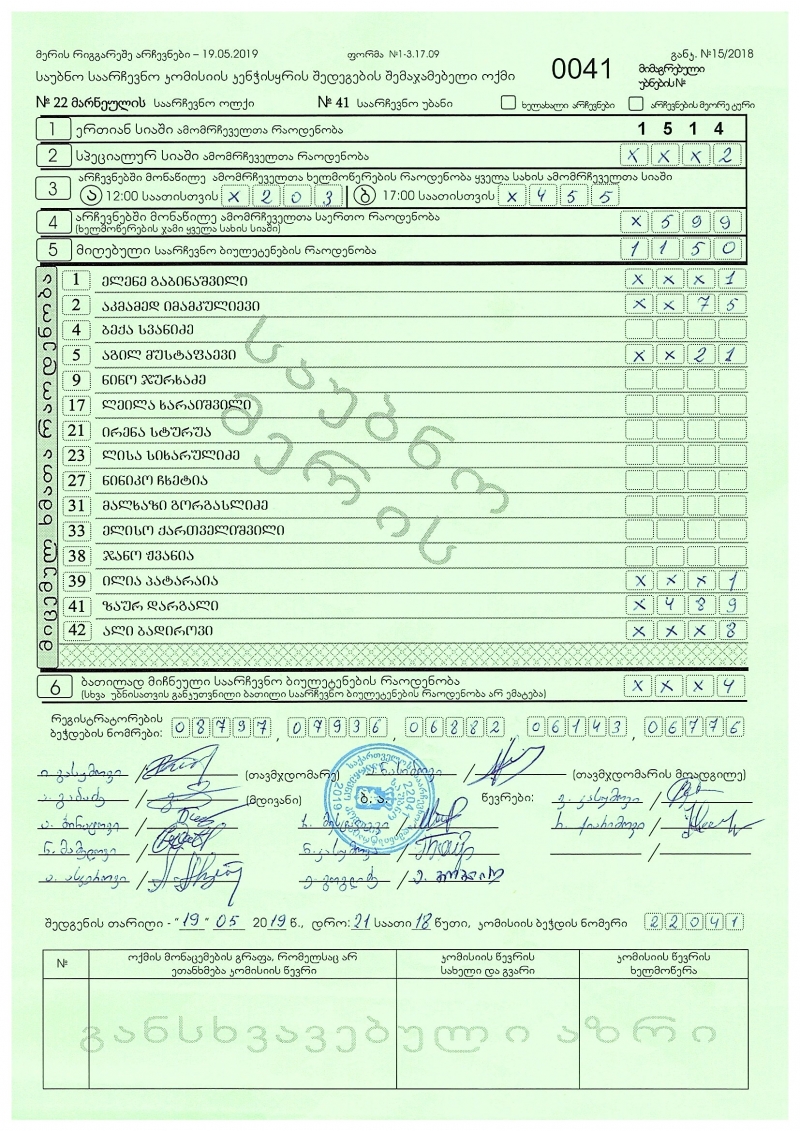 მერის რიგგარეშე არჩევნები – 19.05.2019 ფორმა №1-3.17.09 განკ. №15/2018
საუბნო საარჩევნო კომისიის კენჭისყრის შედეგების შემაჯამებელი ოქმი 0041 მიმაგრებული უბნების№
№ 22 მარნეულის საარჩევნო ოლქი № 41 საარჩევნო უბანი ხელახალი არჩევნები არჩევნების მეორე ტური
1 ერთიან სიაში ამომრჩეველთა რაოდენობა 1 5 1 4
2 სპეციალურ სიაში ამომრჩეველთა რაოდენობა X X X 2
3 არჩევნებში მონაწილე ამომრჩეველთა ხელმოწერების რაოდენობა ყველა სახის ამომრჩეველთა სიაში
ა 12:00 საათისთვის X 2 0 3 ბ 17:00 საათისთვის X 4 5 5
4 არჩევნებში მონაწილე ამომრჩეველთა საერთო რაოდენობა X 5 9 9
(ხელმოწერების ჯამი ყველა სახის სიაში)
5 მიღებული საარჩევნო ბიულეტენების რაოდენობა 1 1 5 0
მიცემულ ხმათა რაოდენობა
1 ელენე გაბინაშვილი X X X 1
2 აკმამედ იმამკულიევი X X 7 5
4 ბექა სვანიძე
5 აგილ მუსტაფაევი X X 2 1
9 ნინო ჯურხაძე
17 ლეილა ხარაიშვილი
21 ირენა სტურუა
23 ლისა სიხარულიძე
27 ნინიკო ჩხეტია
31 მალხაზი გორგასლიძე
33 ელისო ქართველიშვილი
38 ჯანო ჟვანია
39 ილია პატარაია X X X 1
41 ზაურ დარგალი X 4 8 9
42 ალი ბადიროვი X X X 8
საუბნო
მერის
6 ბათილად მიჩნეული საარჩევნო ბიულეტენების რაოდენობა X X X 4
(სხვა უბნისათვის განკუთვნილი ბათილი საარჩევნო ბიულეტენების რაოდენობა არ ემატება)
რეგისტრატორების
ბეჭდების ნომრები: 08797, 07936, 06882, 06143, 06776
(თავმჯდომარე) (თავმჯდომარის მოადგილე)
(მდივანი) ბ. ა. წევრები:
შედგენის თარიღი - "19" 05 2019 წ., დრო: 21 საათი 18 წუთი, კომისიის ბეჭდის ნომერი 22041
№ ოქმის მონაცემების გრაფა, რომელსაც არ ეთანხმება კომისიის წევრი კომისიის წევრის სახელი და გვარი კომისიის წევრის ხელმოწერა
განსხვავებული აზრი